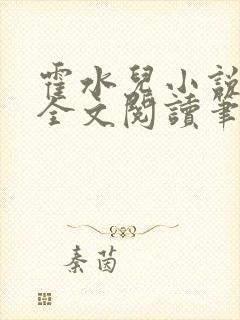 霍水兒小說
全文閱讀筆
秦茵